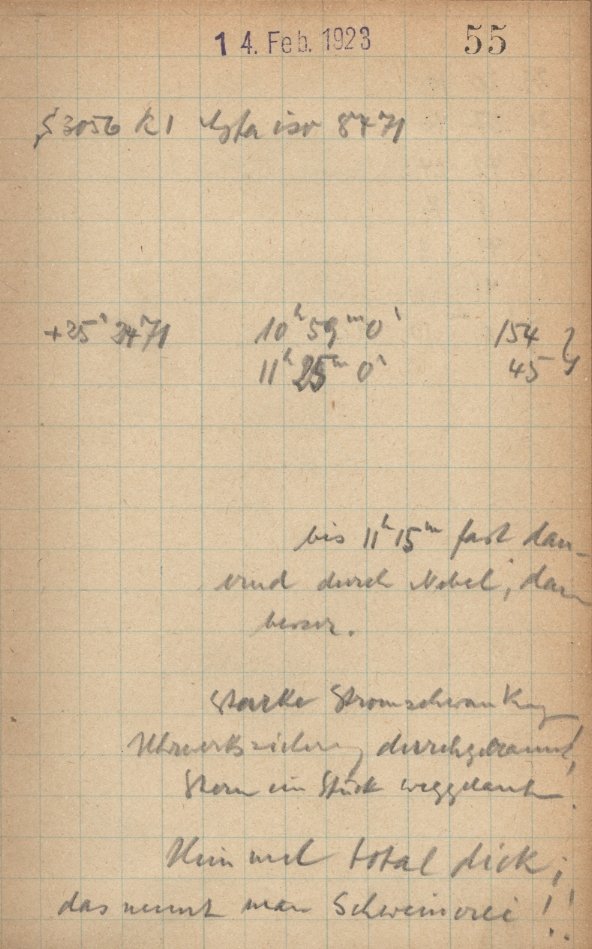 14. Feb. 1923 55
S 3056 K1 iso 8471
+25° 2471 10ʰ 59ᵐ 0ˢ 154
11ʰ 25ᵐ 0ˢ 45
bis 11ʰ 15ᵐ fast dau-
ernd durch Nebel, dann
besser.
Starke Stromschwankung
Uhrwerksicherung durchgebrannt,
Stern ein Stück weggelaufen.
Himmel total dick;
das nennt man Schweinerei!!